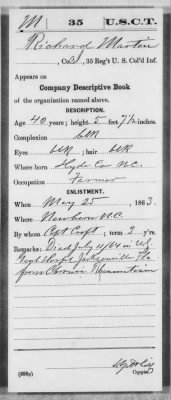 M | 35 | U.S.C.T.
Richard Marten
, Co. , 35 Reg't U. S. Col'd Inf.
Appears on
Company Descriptive Book
of the organization named above.
DESCRIPTION.
Age 40 years; height 5 feet 7½ inches.
Complexion
Eyes ; hair
Where born Hyde Co N.C.
Occupation Farmer
ENLISTMENT.
When May 25, 1863.
Where Newbern N.C.
By whom Capt Croft; term 3 y'rs.
Remarks: Died July 11/64 in U.S.
Genl Hospt Jacksonville Fla
from Chronic Rheumatism
(383g) Copyist.